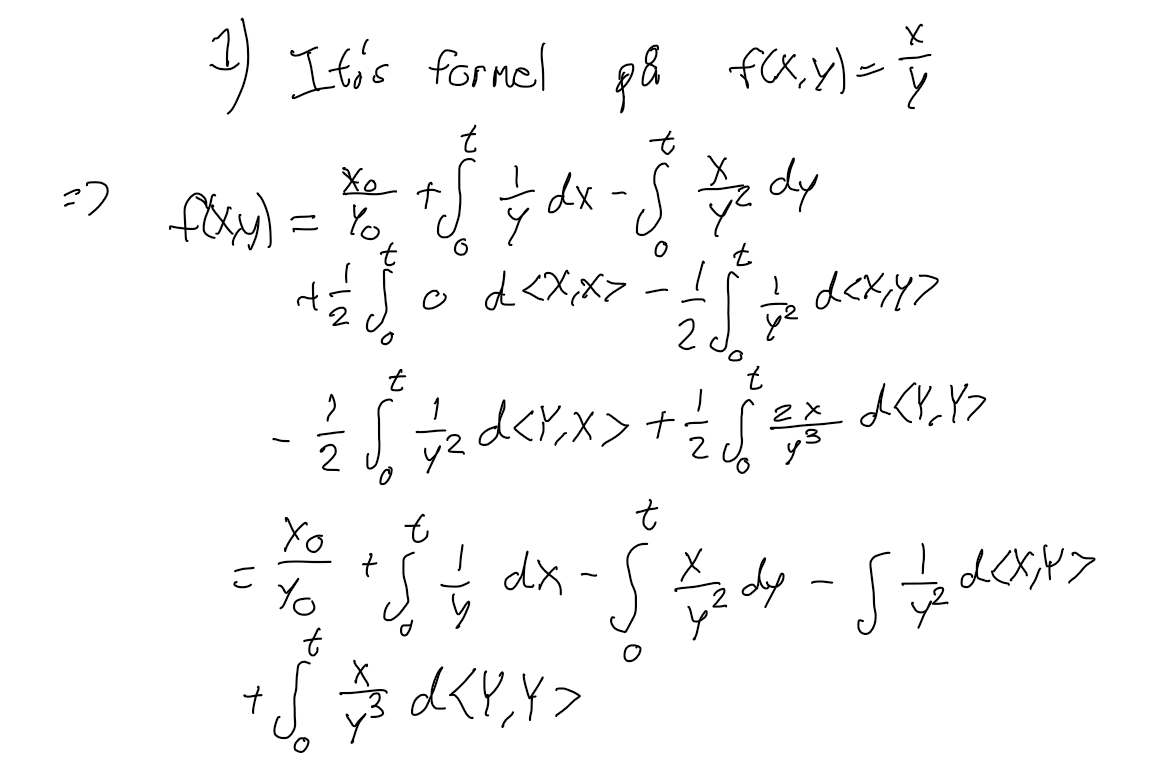 1) Itô's formel på f(x,y) = x/y
=> f(x,y) = X₀/Y₀ + ∫₀ᵗ 1/Y dx - ∫₀ᵗ X/Y² dy
+ 1/2 ∫₀ᵗ 0 d<X,X> - 1/2 ∫₀ᵗ 1/Y² d<X,Y>
- 1/2 ∫₀ᵗ 1/Y² d<Y,X> + 1/2 ∫₀ᵗ 2x/y³ d<Y,Y>
= X₀/Y₀ + ∫₀ᵗ 1/y dx - ∫₀ᵗ X/Y² dy - ∫ 1/Y² d<X,Y>
+ ∫₀ᵗ X/Y³ d<Y,Y>